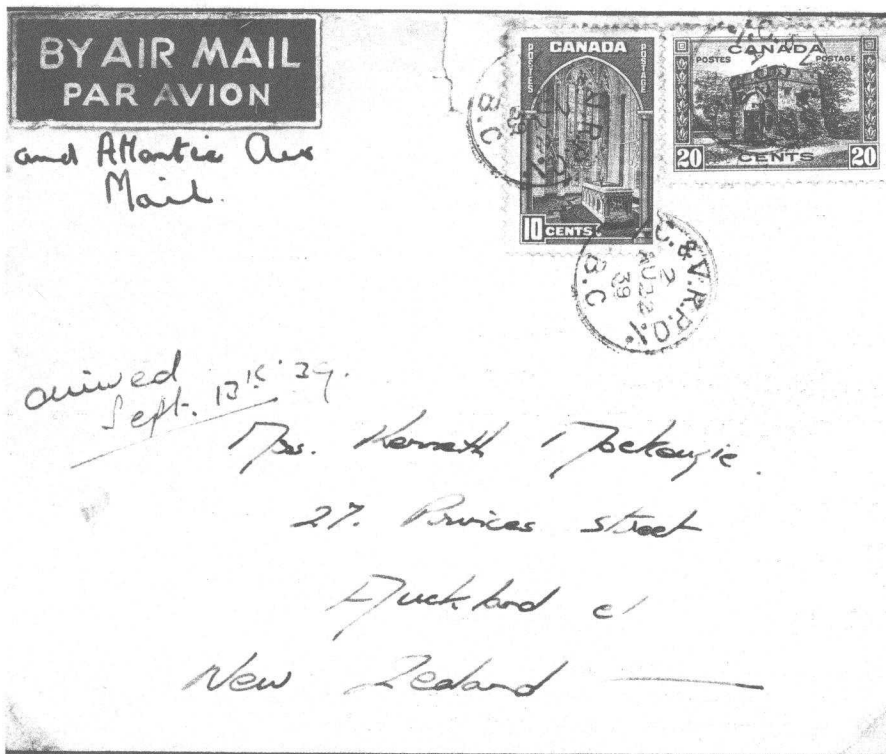 BY AIR MAIL
PAR AVION
and Atlantic Air
Mail.
CANADA
POSTES
POSTAGE
10 CENTS
CANADA
POSTES
POSTAGE
20 CENTS 20
B.C
39
C. & V.R.P.O.
2
AU 22
39
B.C
arrived
Sept. 13th '39.
Mrs. Kenneth Mackenzie.
27. Princes Street
Auckland C1
New Zealand